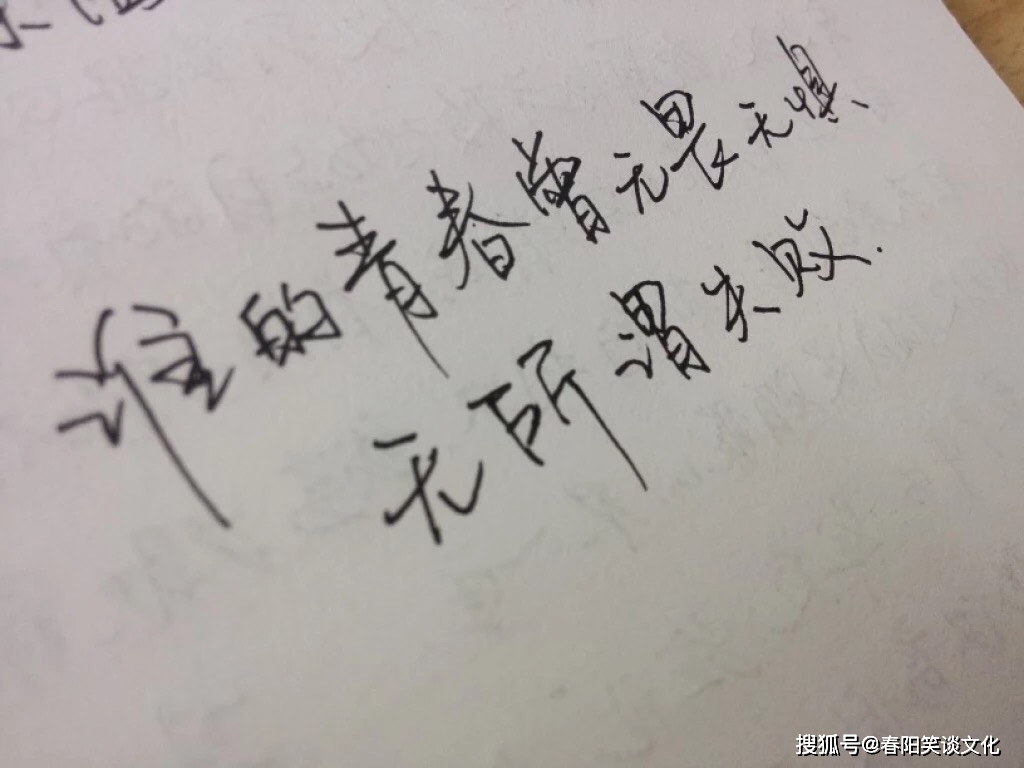 谁的青春曾无畏无惧、
无所谓失败.
搜狐号@春阳笑谈文化